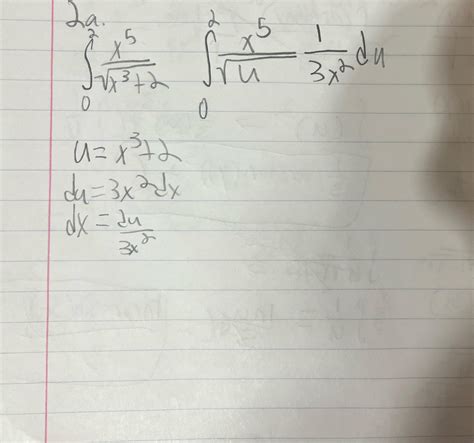 2a.
∫₀² x⁵/√(x³+2)   ∫₀² x⁵/√u 1/(3x²) du
u = x³+2
du = 3x² dx
dx = du/(3x²)